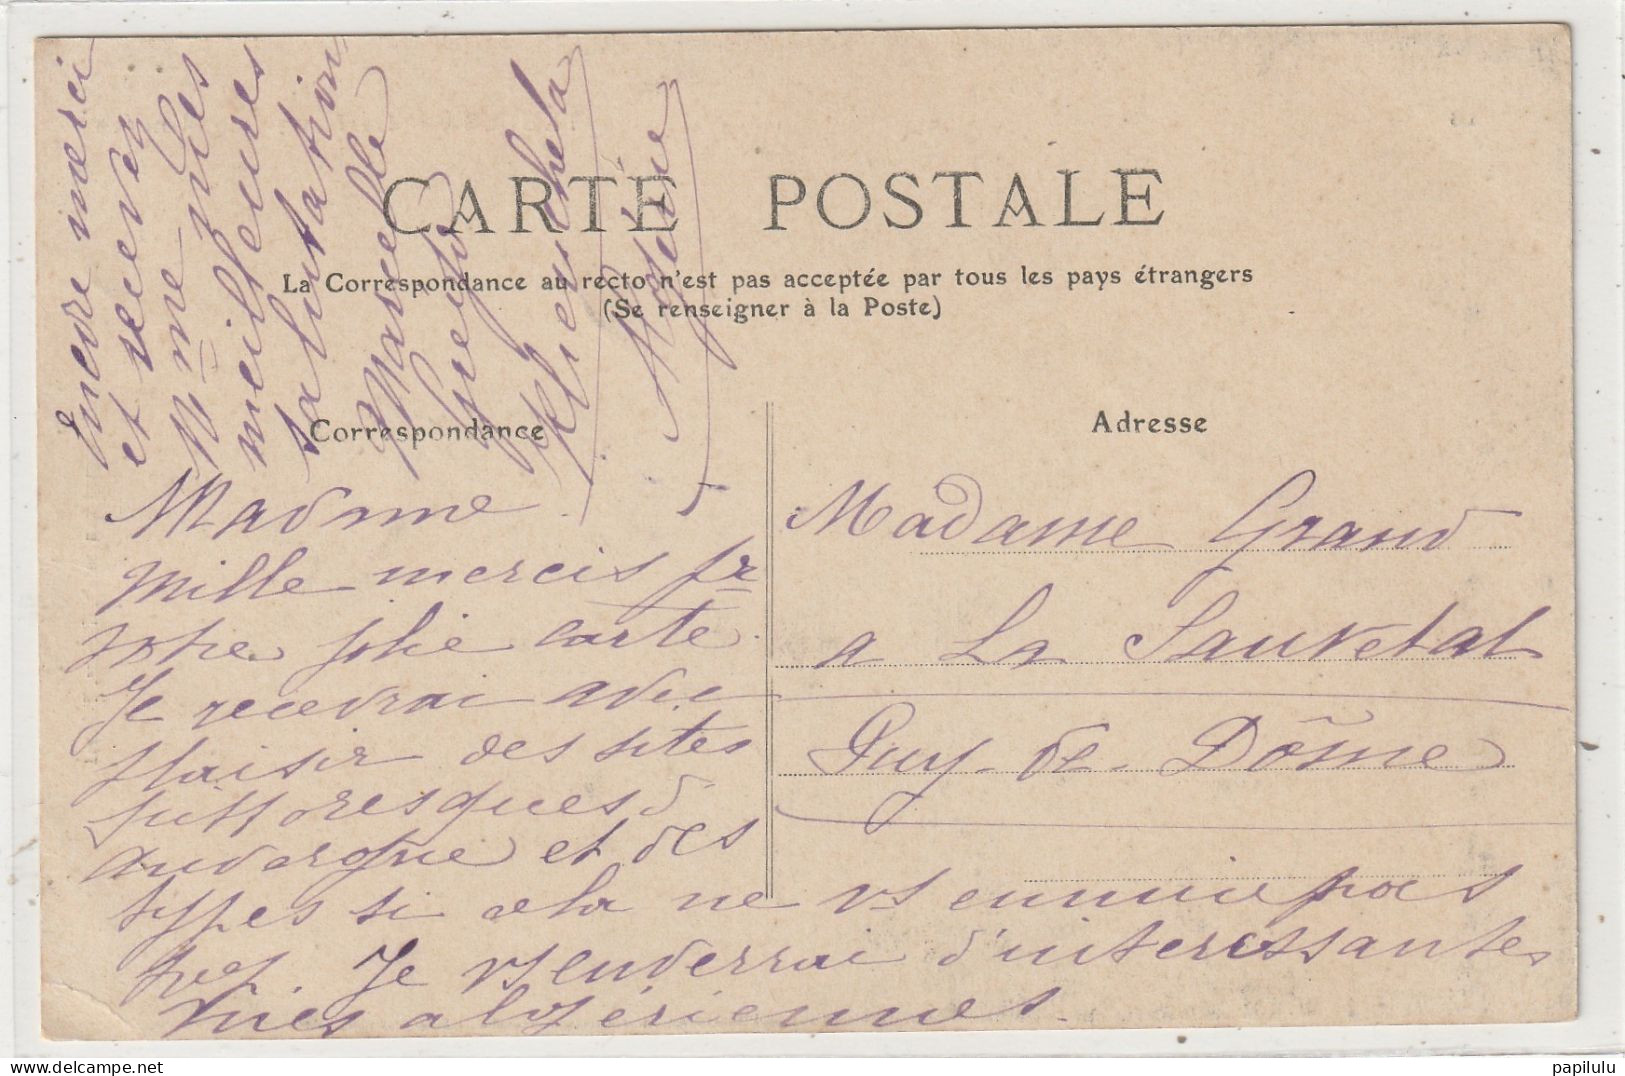 CARTE POSTALE
La Correspondance au recto n'est pas acceptée par tous les pays étrangers
(Se renseigner à la Poste)
Correspondance
Adresse
Madame
Mille mercis pr
votre jolie carte.
Je recevrai avec
plaisir des sites
pittoresques d'
auvergne et des
types si cela ne vs ennuie pas
trop. Je vs enverrai d'interessantes
vues algériennes.
Encore merci
et recevez
Mme mes
meilleures
salutations
Marcelle
Khenchela
Algérie
Madame Grand
a La Sauvetat
Puy-de-Dôme
papilulu